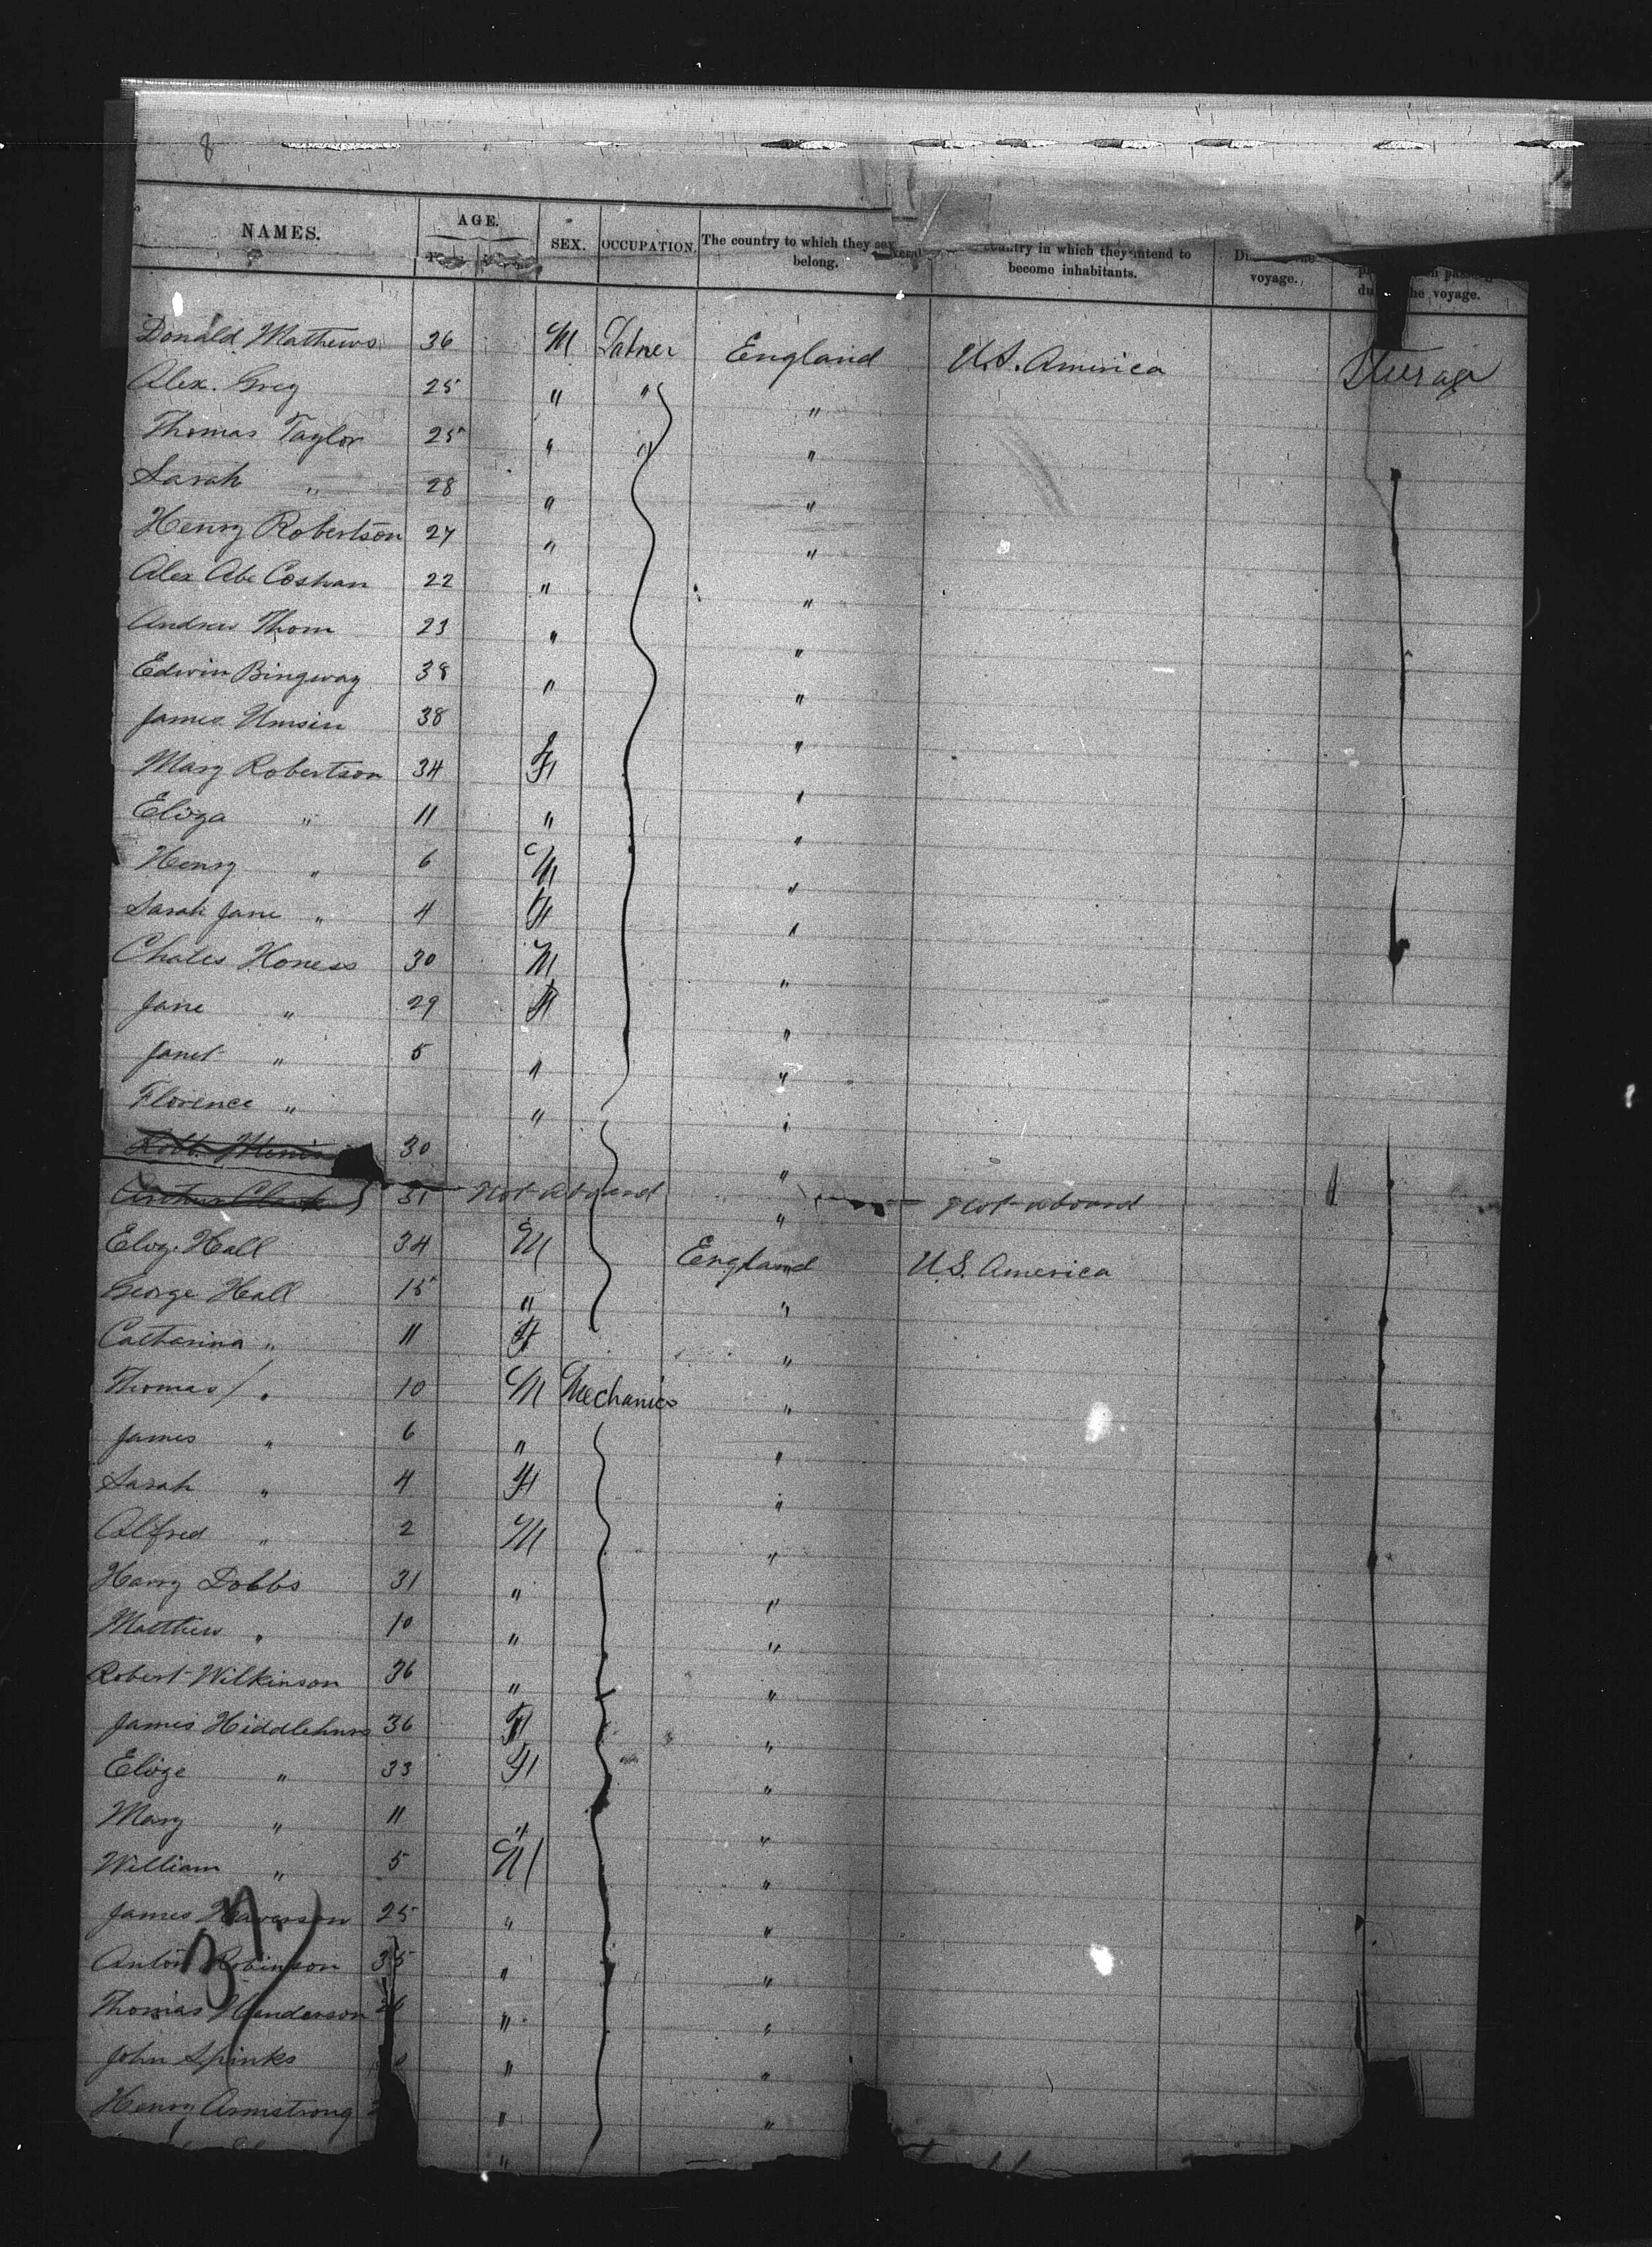 8
NAMES. AGE. SEX. OCCUPATION. The country to which they severally belong. country in which they intend to become inhabitants. voyage. the voyage.
Donald Mathews 36 M England U.S. America
Alex. Greg 25 " " "
Thomas Taylor 25 " " "
Sarah " 28 " "
Henry Robertson 27 " "
Alex Abe Coshan 22 " "
Andrew Thom 23 " "
Edwin Bingway 38 " "
James 38 "
Mary Robertson 34 F "
Eliza " 11 " "
Henry " 6 M "
Sarah Jane " 4 F "
Chales Honess 30 M "
Jane " 29 F "
Janet " 5 " "
Florence " " "
Robt. 30 "
Arthur Clark 31 Not aboard " Not aboard
Eloz. Hall 34 M England U.S. America
George Hall 15 " "
Catharina " 11 F "
Thomas " 10 M Mechanics "
James " 6 " "
Sarah " 4 F "
Alfred " 2 M "
Harry Dobbs 31 " "
Matthew " 10 " "
Robert Wilkinson 36 " "
James 36 "
Elize " 33 F "
Mary " 11 " "
William " 5 M "
James 25 " "
Anton Robinson 35 " "
Thomas Henderson " "
John Spinks " "
Henry Armstrong " "
"